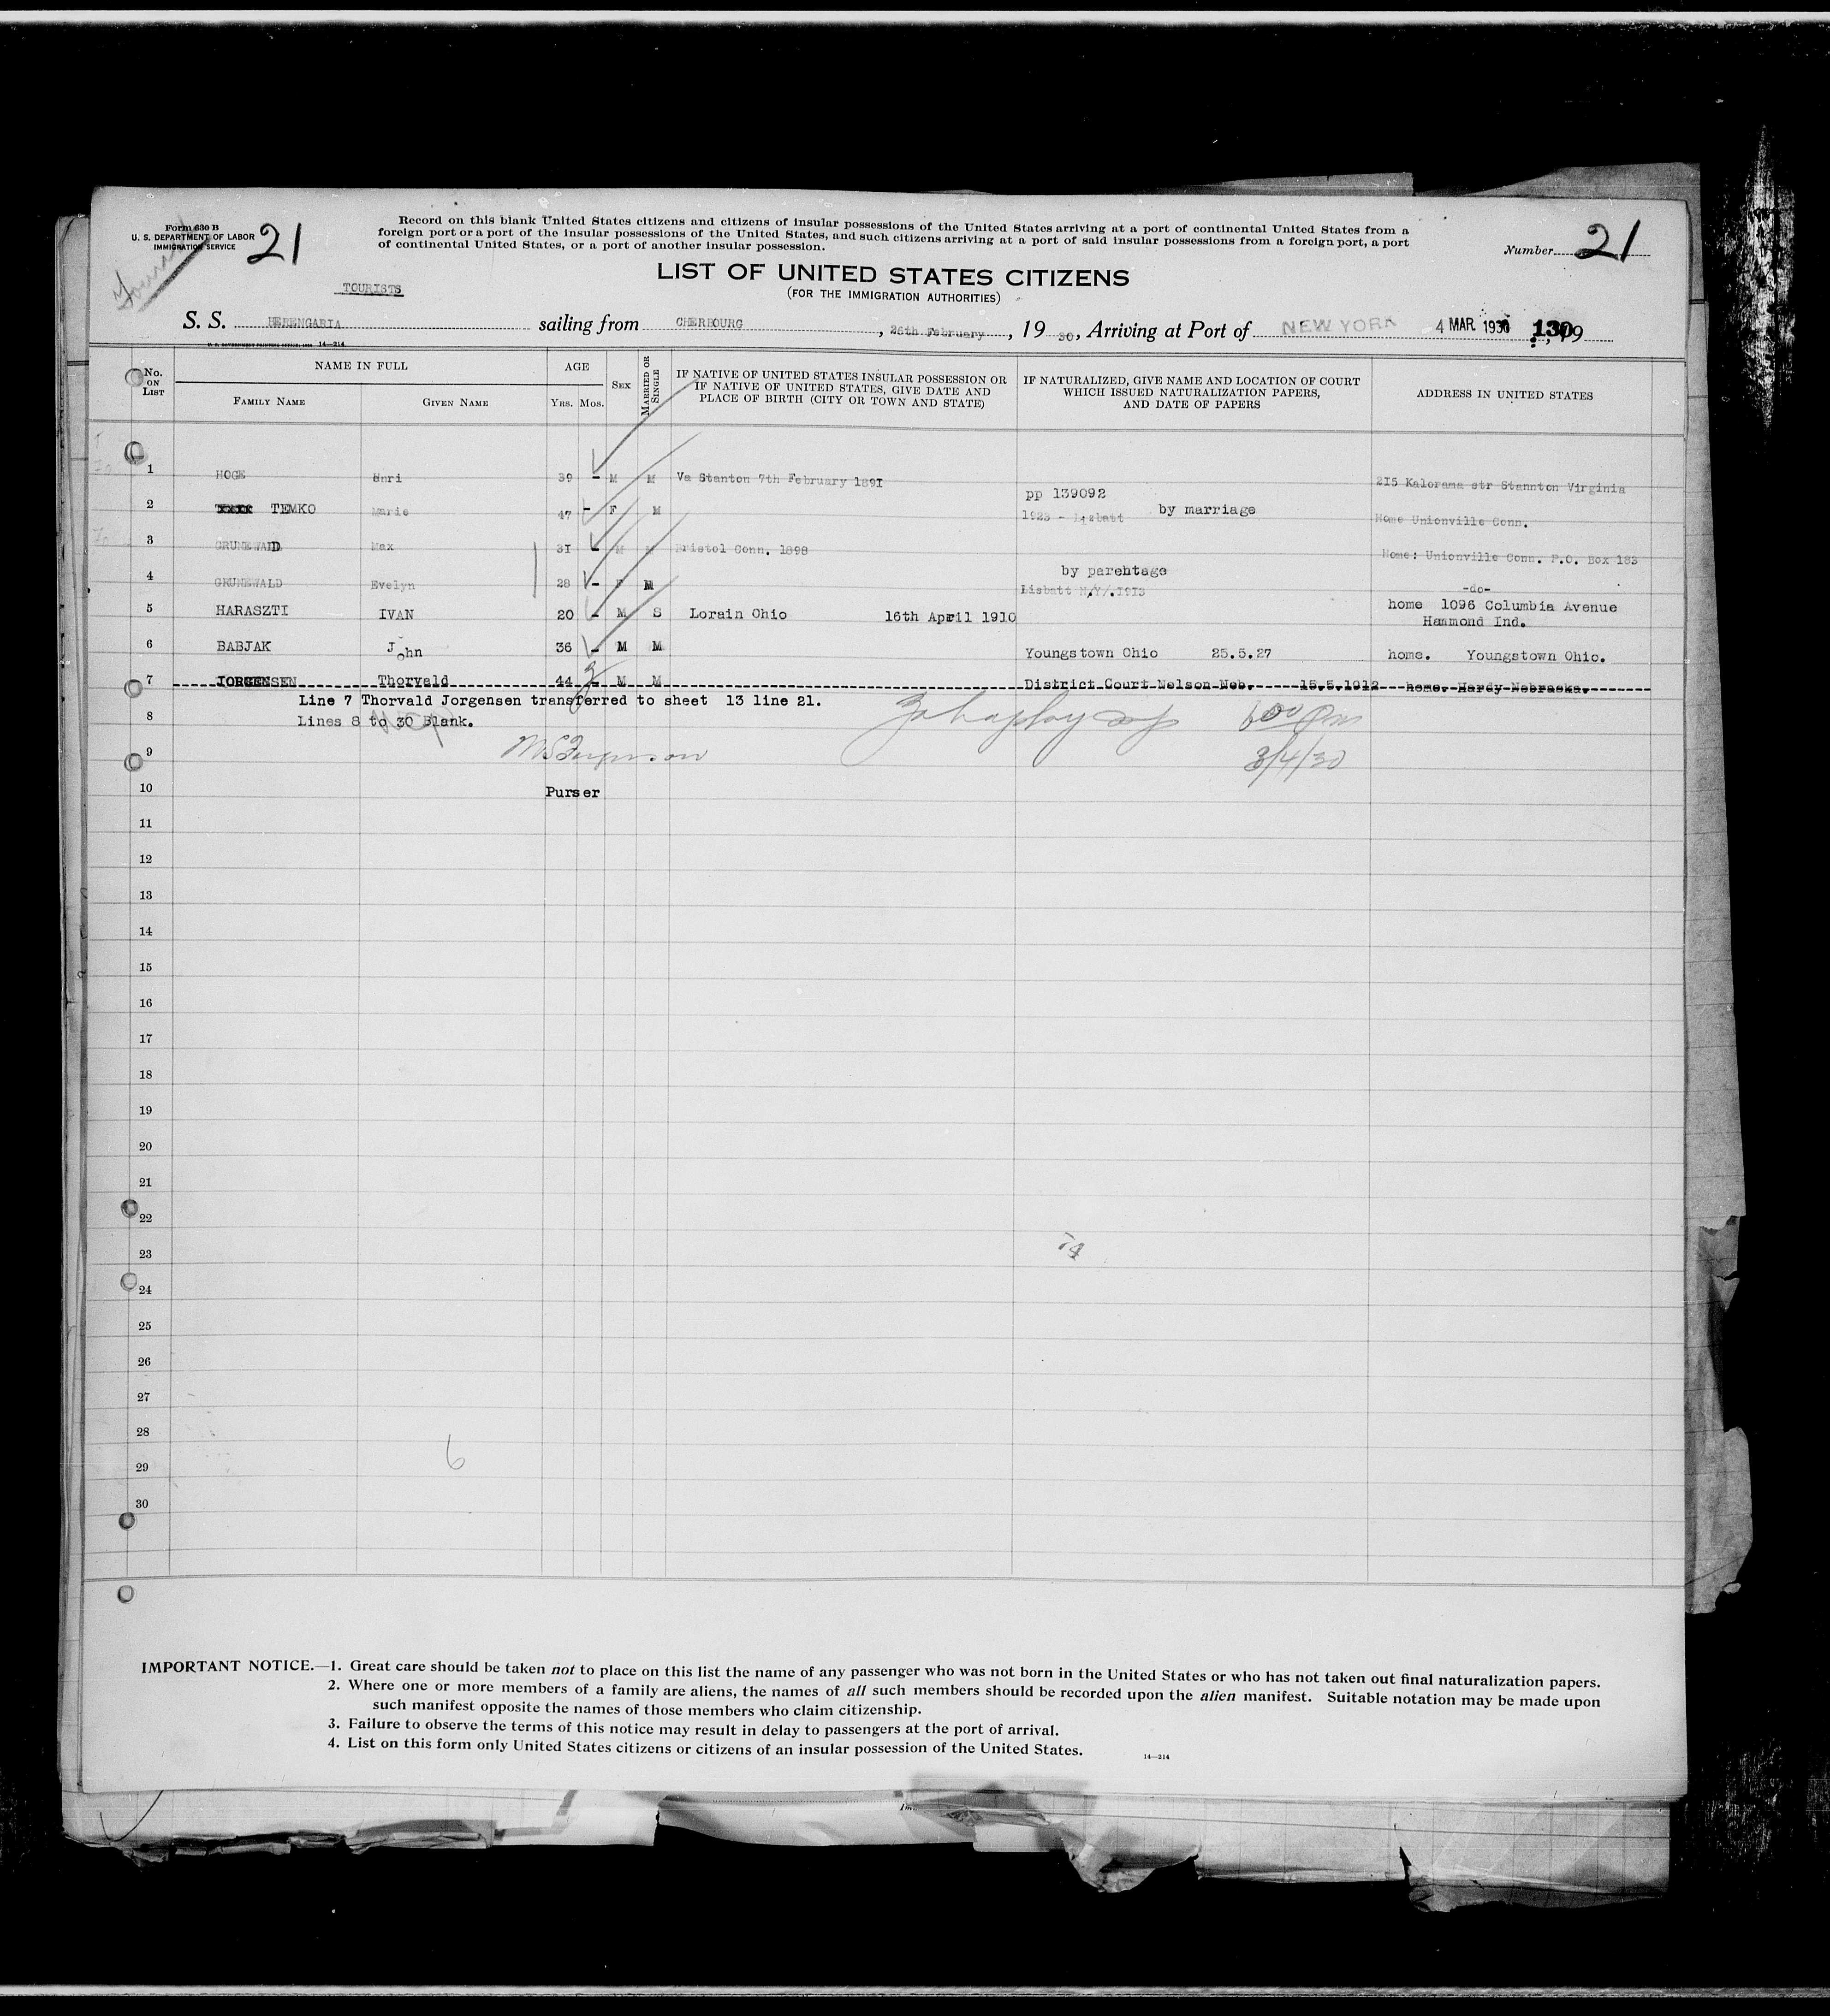 Form 630 B
U. S. DEPARTMENT OF LABOR
IMMIGRATION SERVICE
21
Record on this blank United States citizens and citizens of insular possessions of the United States arriving at a port of continental United States from a
foreign port or a port of the insular possessions of the United States, and such citizens arriving at a port of said insular possessions from a foreign port, a port
of continental United States, or a port of another insular possession.
Number 21
LIST OF UNITED STATES CITIZENS
(FOR THE IMMIGRATION AUTHORITIES)
TOURISTS
S. S. BERENGARIA sailing from CHERBOURG, 26th February, 19 30, Arriving at Port of NEW YORK 4 MAR 1930 130, 19
14—214
No. ON LIST NAME IN FULL AGE SEX MARRIED OR SINGLE IF NATIVE OF UNITED STATES INSULAR POSSESSION OR IF NATIVE OF UNITED STATES, GIVE DATE AND PLACE OF BIRTH (CITY OR TOWN AND STATE) IF NATURALIZED, GIVE NAME AND LOCATION OF COURT WHICH ISSUED NATURALIZATION PAPERS, AND DATE OF PAPERS ADDRESS IN UNITED STATES
FAMILY NAME GIVEN NAME YRS. MOS.
1 HOGE 39 - M M Va Stanton 7th February 1891 215 Kalorama str Stannton Virginia
pp 139092
2 TEMKO Marie 47 - F M 1923 - by marriage Home Unionville Conn.
3 GRUNEWALD Max 31 - M M Bristol Conn. 1898 Home: Unionville Conn. P.O. Box 183
by parehtage
4 GRUNEWALD Evelyn 28 - F M Lisbatt N/Y/.1913 -do-
5 HARASZTI IVAN 20 - M S Lorain Ohio 16th April 1910 home 1096 Columbia Avenue
Hammond Ind.
6 BABJAK John 36 - M M Youngstown Ohio 25.5.27 home. Youngstown Ohio.
7 JORGENSEN Thorvald 44 - M M District Court Nelson Neb. 15.5.1912 home. Hardy Nebraska.
Line 7 Thorvald Jorgensen transferred to sheet 13 line 21.
8 Lines 8 to 30 Blank.
9 3/4/30
10 Purser
11
12
13
14
15
16
17
18
19
20
21
22
23
24
25
26
27
28
29 6
30
IMPORTANT NOTICE.—1. Great care should be taken not to place on this list the name of any passenger who was not born in the United States or who has not taken out final naturalization papers.
2. Where one or more members of a family are aliens, the names of all such members should be recorded upon the alien manifest. Suitable notation may be made upon
such manifest opposite the names of those members who claim citizenship.
3. Failure to observe the terms of this notice may result in delay to passengers at the port of arrival.
4. List on this form only United States citizens or citizens of an insular possession of the United States.
14—214